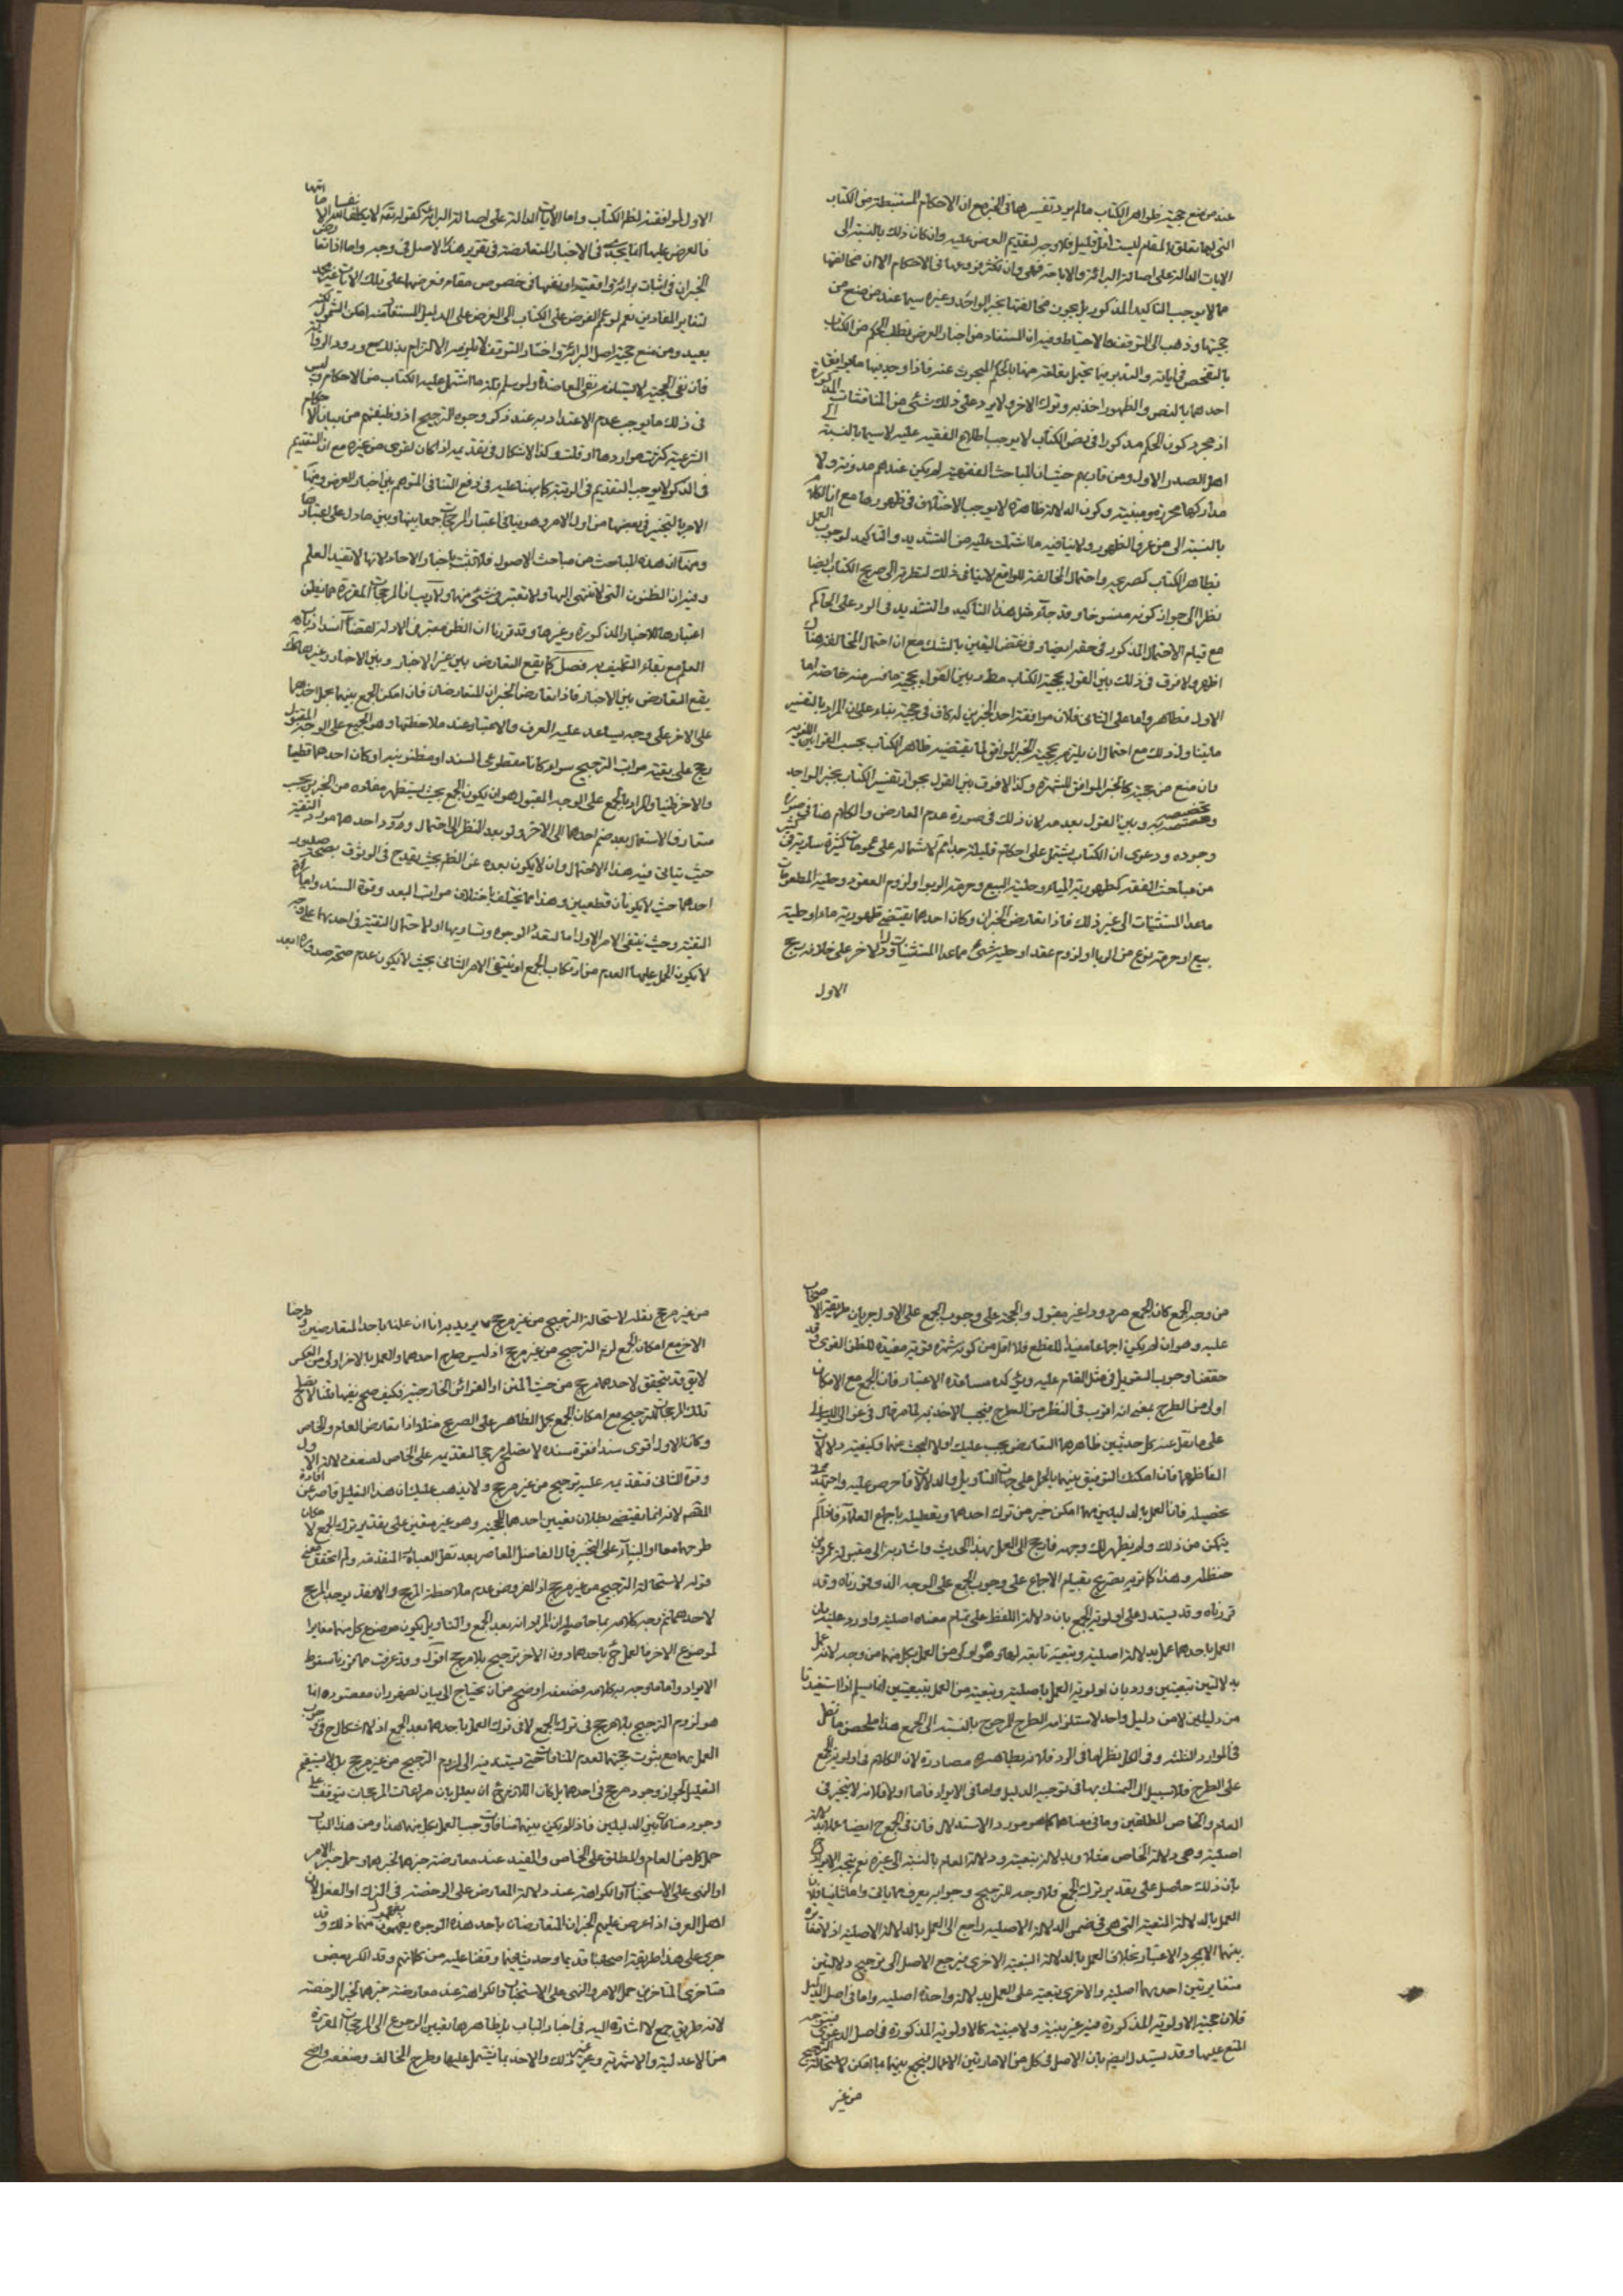 عند من منع حجية ظواهر الكتاب ما لم يرد تفسيرها في الخبر مع ان الاحكام المستنبطة من الكتاب
التي لها تعلق بالمقام ليست اقل قليل فلا وجه لتقديم العرض عليه وان كان ذلك بالنسبة الى
الايات الدالة على اصالة البرائة والاباحة فهي وان تكثر فروعها في الاحكام الا ان مخالفتها
مما لا يوجب التاكيد المذكور بل يجوز مخالفتها بخبر الواحد وغيره سيما عند من منع من
حجيتها وذهب الى التوقف والاحتياط وفيه ان المستفاد من اخبار العرض تطلب الحكم من الكتاب
بالتفحص في اياته والتدبر فيما يحتمل تعلقه منها بالحكم المبحوث عنه فاذا وجد فيها ما يوافق
احدهما بالنص والظهور اخذ به وترك الاخر ولا يرد على ذلك شئ من المناقشات المذكورة
اذ مجرد كون الحكم مذكورا في نص الكتاب لا يوجب اطلاع الفقيه عليه لا سيما بالنسبة الى
اهل الصدر الاول ومن قاربهم حيث ان المباحث الفقهية لم يكن عندهم مدونة ولا
مداركها محرزة مبينة وكون الدلالة ظاهرة لا يوجب الاختلاف في ظهورها مع ان الكلام
بالنسبة الى من عرف الظهور ولا ينافيه ما اشتملت عليه من التشديد والتاكيد لوجوب العمل
بظاهر الكتاب كصريحه واحتمال المخالفة للواقع لا ينافي ذلك لتطرقه الى صريح الكتاب ايضا
نظرا الى جواز كونه منسوخا وقد جاء مثل هذا التأكيد والتشديد في الرد على الحاكم
مع قيام الاحتمال المذكور في حقه ايضا وفي نقض اليقين بالشك مع ان احتمال المخالفة هناك
اظهر ولا فرق في ذلك بين القول بحجية الكتاب مطلقا وبين القول بحجية ما فسر منه خاصة اما
الاول فظاهر واما على الثاني فلان موافقة احد الخبرين له كاف في حجيته بناء على ان المراد بالتفسير
ما يتناول ذلك مع احتمال ان يلتزم بحجية الخبر الموافق لما يقتضيه ظاهر الكتاب بحسب القوانين اللغوية
وان منع من حجيته كالخبر الموافق للشهرة وكذا لا فرق بين القول بجواز تفسير الكتاب بخبر الواحد
وتخصيصه به وبين القول بعدمه لان ذلك في صورة عدم المعارض والكلام هنا في صورة
وجوده ودعوى ان الكتاب يشتمل على احكام قليلة جدا ثم لاشتماله على عمومات كثيرة سارية في كثير
من مباحث الفقه كطهورية المياه وحلية البيع وحرمة الربوا ولزوم العقود وحلية المطعومات
ما عدا المستثنيات الى غير ذلك فاذا تعارض الخبران وكان احدهما يقتضي طهورية ماء او حلية
بيع او حرمة نوع من الربا او لزوم عقد او حلية شئ مما عدا المستثنيات ودل الاخر على خلافه رجح
الاول
الاول لموافقته لنظر الكتاب واما الآيات الدالة على اصالة البرائة كقوله تعالى لا يكلف الله نفسا الا ما اتيها
فالعرض عليها انما يجدى في الاخبار المتعارضة في تقرير هذا الاصل في وجه واما اذا تعارض
الخبران في اثبات برائة واقعية او نفيها في خصوص مقام فعرضها على تلك الايات غير مجد
لتغاير المفادين نعم لو عمم العرض على الكتاب الى العرض على الدليل المستفاد منه امكن الشمول لكنه
بعيد ومن منع حجية اصل البرائة واختار التوقف لا يلزمه الالتزام بذلك مع ورود الرواية به
فان نفى الحجية لا يستلزم نفي المعاضدة ولو سلم قلة ما اشتمل عليه الكتاب من الاحكام فليس
في ذلك ما يوجب عدم الاعتداد به عند ذكر وجوه الترجيح اذ وظيفتهم من بيان الاحكام
الشرعية كثرت مواردها او قلت وكذا الاشكال في تقديمه اذا كان اقوى من غيره مع ان التقديم
في الذكر لا يوجب التقديم في الرتبة كما نبهنا عليه في دفع التنافي المتوهم بين اخبار العرض ومنها
الامر بالتخيير في بعضها من اول الامر وهو ينافي اعتبار المرجحات جمعا بينها وبين ما دل على اعتبارها
ومنها ان هذه المباحث من مباحث الاصول فلا تثبت باخبار الاحاد لانها لا تفيد العلم
وفيه ان الظنون التي لا تنتهي الى العلم لا تعتبر في شئ منها ولا ريب ان المرجحات المقررة مما يظن
اعتبارها للاخبار المذكورة وغيرها وقد قررنا ان الظن معتبر في الادلة لقضاء انسداد باب
العلم مع بقاء التكليف به فصل كما يقع التعارض بين غير الاخبار وبين الاخبار وغيرها كذلك
يقع التعارض بين الاخبار فاذا تعارض الخبران المتعارضان فان امكن الجمع بينهما بحمل احدهما
على الاخر على وجه يساعد عليه العرف والاعتبار عند ملاحظتهما وهو الجمع على الوجه المقبول
رجح على بقية مراتب الترجيح سواء كانا مقطوعي السند او مظنونيه او كان احدهما قطعيا
والاخر ظنيا والمراد بالجمع على الوجه المقبول هو ان يكون الجمع بحيث يستظهر مفاده من الخبرين بحسب
متعارف الاستعمال بعد ضم احدهما الى الاخر ولو بعد النظر الى احتمال ورود احدهما مورد التقية
حيث يتاتى فيه هذا الاحتمال وان لا يكون بعده عن الظم بحيث يقدح في الوثوق بصحة صدور
احدهما حيث لا يكونان قطعيين وهذا مما يختلف باختلاف مراتب البعد وقوة السند وامارة
التقية وحيث ينتفى الامر الاول اما لتعدد الوجوه وتساويها او لاحتمال التقية في احدهما على وجه
لا يكون الحمل عليها العدم من ارتكاب الجمع او ينتفى الامر الثاني بحيث لا يكون عدم صحة صدوره ابعد
من وجه الجمع كان الجمع مردودا غير مقبول والحجة على وجوب الجمع على الاول جريان طريقة الاصحاب
عليه وهو ان لم يكن اجماعا مفيدا للقطع فلا اقل من كونه شهرة قوية مفيدة للظن القوي وقد
حققنا وجوب التعويل في مثل المقام عليه ويؤكده مساعدة الاعتبار فان الجمع مع الامكان
اولى من الطرح بمعنى انه اقرب في النظر من الطرح فيجب الاخذ به لما مر قال في غوالي اللئالي
على ما نقل عنه كل حديثين ظاهرهما التعارض يجب عليك اولا البحث عنهما وكيفية دلالات
الفاظهما فان امكنك التوفيق بينهما بالحمل على جهات التأويل والدلالات فاحرص عليه واجتهد في
تحصيله فان العمل بالدليلين مهما امكن خير من ترك احدهما وتعطيله باجماع العلماء فاذا لم
يتمكن من ذلك ولم يظهر لك وجهه فارجع الى العمل بهذا الحديث واشار به الى مقبولة عمر بن
حنظلة وهذا كما ترى تصريح بقيام الاجماع على وجوب الجمع على الوجه الذي قررناه وقد
قررناه وقد يستدل على اولوية الجمع بان دلالة اللفظ على تمام معناه اصلية واورد عليه بان
العمل باحدهما عمل بدلالة اصلية وتبعية تابعة لها وهو اولى من العمل بكل منهما من وجه لانه عمل
بدلالتين تبعيتين وردّ بان اولوية العمل باصلية وتبعية من العمل بتبعيتين انما يسلم اذا استفيدتا
من دليلين لا من دليل واحد لاستلزامه الطرح المرجوح بالنسبة الى الجمع هذا ملخص ما نقل
في الموارد الثلثة وفي الكل نظر اما في الرد فلانه بظاهره مصادرة لان الكلام في اولوية الجمع
على الطرح فلا سبيل الى التمسك بها في توجيه الدليل واما في الايراد فاما اولا فلانه لا يتجه في
العام والخاص المطلقين وما في معناهما كما هو مورد الاستدلال فان في الجمع ح ايضا عملا بدلالة
اصلية وهي دلالة الخاص مثلا وبدلالة تبعية ودلالة العام بالنسبة الى غيره نعم يتجه الايراد ح
بان ذلك حاصل على تقدير ترك الجمع فلا وجه للترجيح وجوابه يعرف مما ياتي واما ثانيا فلان
العمل بالدلالة التبعية التي هي في ضمن الدلالة الاصلية راجع الى العمل بالدلالة الاصلية اذ لا تغاير
بينهما الا بمجرد الاعتبار بخلاف العمل بالدلالة التبعية الاخرى فيرجع الاصل الى ترجيح دلالتين
متغايرتين احدهما اصلية والاخرى تبعية على العمل بدلالة واحدة اصلية واما في اصل الدليل
فلان حجية الاولوية المذكورة غير بينة ولا مبينة كالاولوية المذكورة في اصل الدعوى فيتوجه
المنع عليها وقد يستدل ايضا بان الاصل في كل من الامارتين الاعمال فيجمع بينهما بما امكن لاستحالة الترجيح
من غير
من غير مرجح نقله لاستحالة الترجيح من غير مرجح مما يريد به انا ان علمنا باحد المتعارضين وطرحنا
الاخر مع امكان الجمع لزم الترجيح من غير مرجح اذ ليس طرح احدهما والعمل بالاخر اولى من العكس
لا يق قد يتحقق لاحدهما مرجح من حيث المتن او القرائن الخارجية فكيف صح نفيها قلنا لا يصلح
تلك المرجحات للترجيح مع امكان الجمع بحمل الظاهر على الصريح مثلا اذا تعارض العام والخاص
وكان الاول اقوى سندا فقوة سنده لا تصلح مرجحا لتقديمه على الخاص لضعف دلالة الاول
وقوة الثاني فتقديمه عليه ترجيح من غير مرجح ولا يذهب عليك ان هذا التعليل قاصر عن افادة
المقصود لانه انما يقتضي بطلان تعيين احدهما للحجية وهو غير متعين على تقدير ترك الجمع لامكان
طرحهما معا او البناء على التخيير قال الفاضل المعاصر بعد نقل العبارة المتقدمة ولم اتحقق معنى
قوله لاستحالة الترجيح من غير مرجح اذ المفروض عدم ملاحظة المرجح والا فقد يوجد المرجح
لاحدهما ثم وجه كلامه بما حاصله ان المراد انه بعد الجمع والتاويل يكون موضوع كل منهما مغايرا
لموضوع الاخر فالعمل ح باحدهما دون الاخر ترجيح بلا مرجح اقول وقد عرفت مما قررنا سقوط
الايراد واما ما وجه به كلامه فضعفه اوضح من ان يحتاج الى بيان لظهور ان مقصوده انما
هو لزوم الترجيح بلا مرجح في ترك الجمع لا في ترك العمل باحدهما بعد الجمع اذ لا اشكال ح في وجوب
العمل بهما مع ثبوت حجيتهما لعدم المنافاة حتى يستند فيه الى لزوم الترجيح من غير مرجح بل لا يستقيم
التعليل لجواز وجود مرجح في احدهما بل كان اللازم ح ان يعلل بان مراعات المرجحات يتوقف على
وجود منافات بين الدليلين فاذا لم يكن بينهما منافات وجب العمل بكل منهما هذا ومن هذا الباب
حمل كل من العام والمطلق على الخاص والمقيد عند معارضة خبرهما لخبرهما وحمل خبر الامر
او النهي على الاستحباب او الكراهة عند دلالة المعارض على الرخصة في الترك او الفعل لان
اهل العرف اذا عرض عليهم الخبران المتعارضان باحد هذه الوجوه يفهمون منهما ذلك وقد
جرى على هذا طريقة اصحابنا قديما وحديثا فيما وقفنا عليه من كلماتهم وقد انكر بعض
متاخري المتاخرين حمل الامر والنهي على الاستحباب والكراهة عند معارضة خبرهما لخبر الرخصة
لانه طريق جمع لا اشارة اليه في اخبار الباب بل ظاهرها تعيين الرجوع الى المرجحات المقررة
من الاعدلية والاشهرية وغير ذلك والاخذ بما يشتمل عليها وطرح المخالف وضعفه واضح